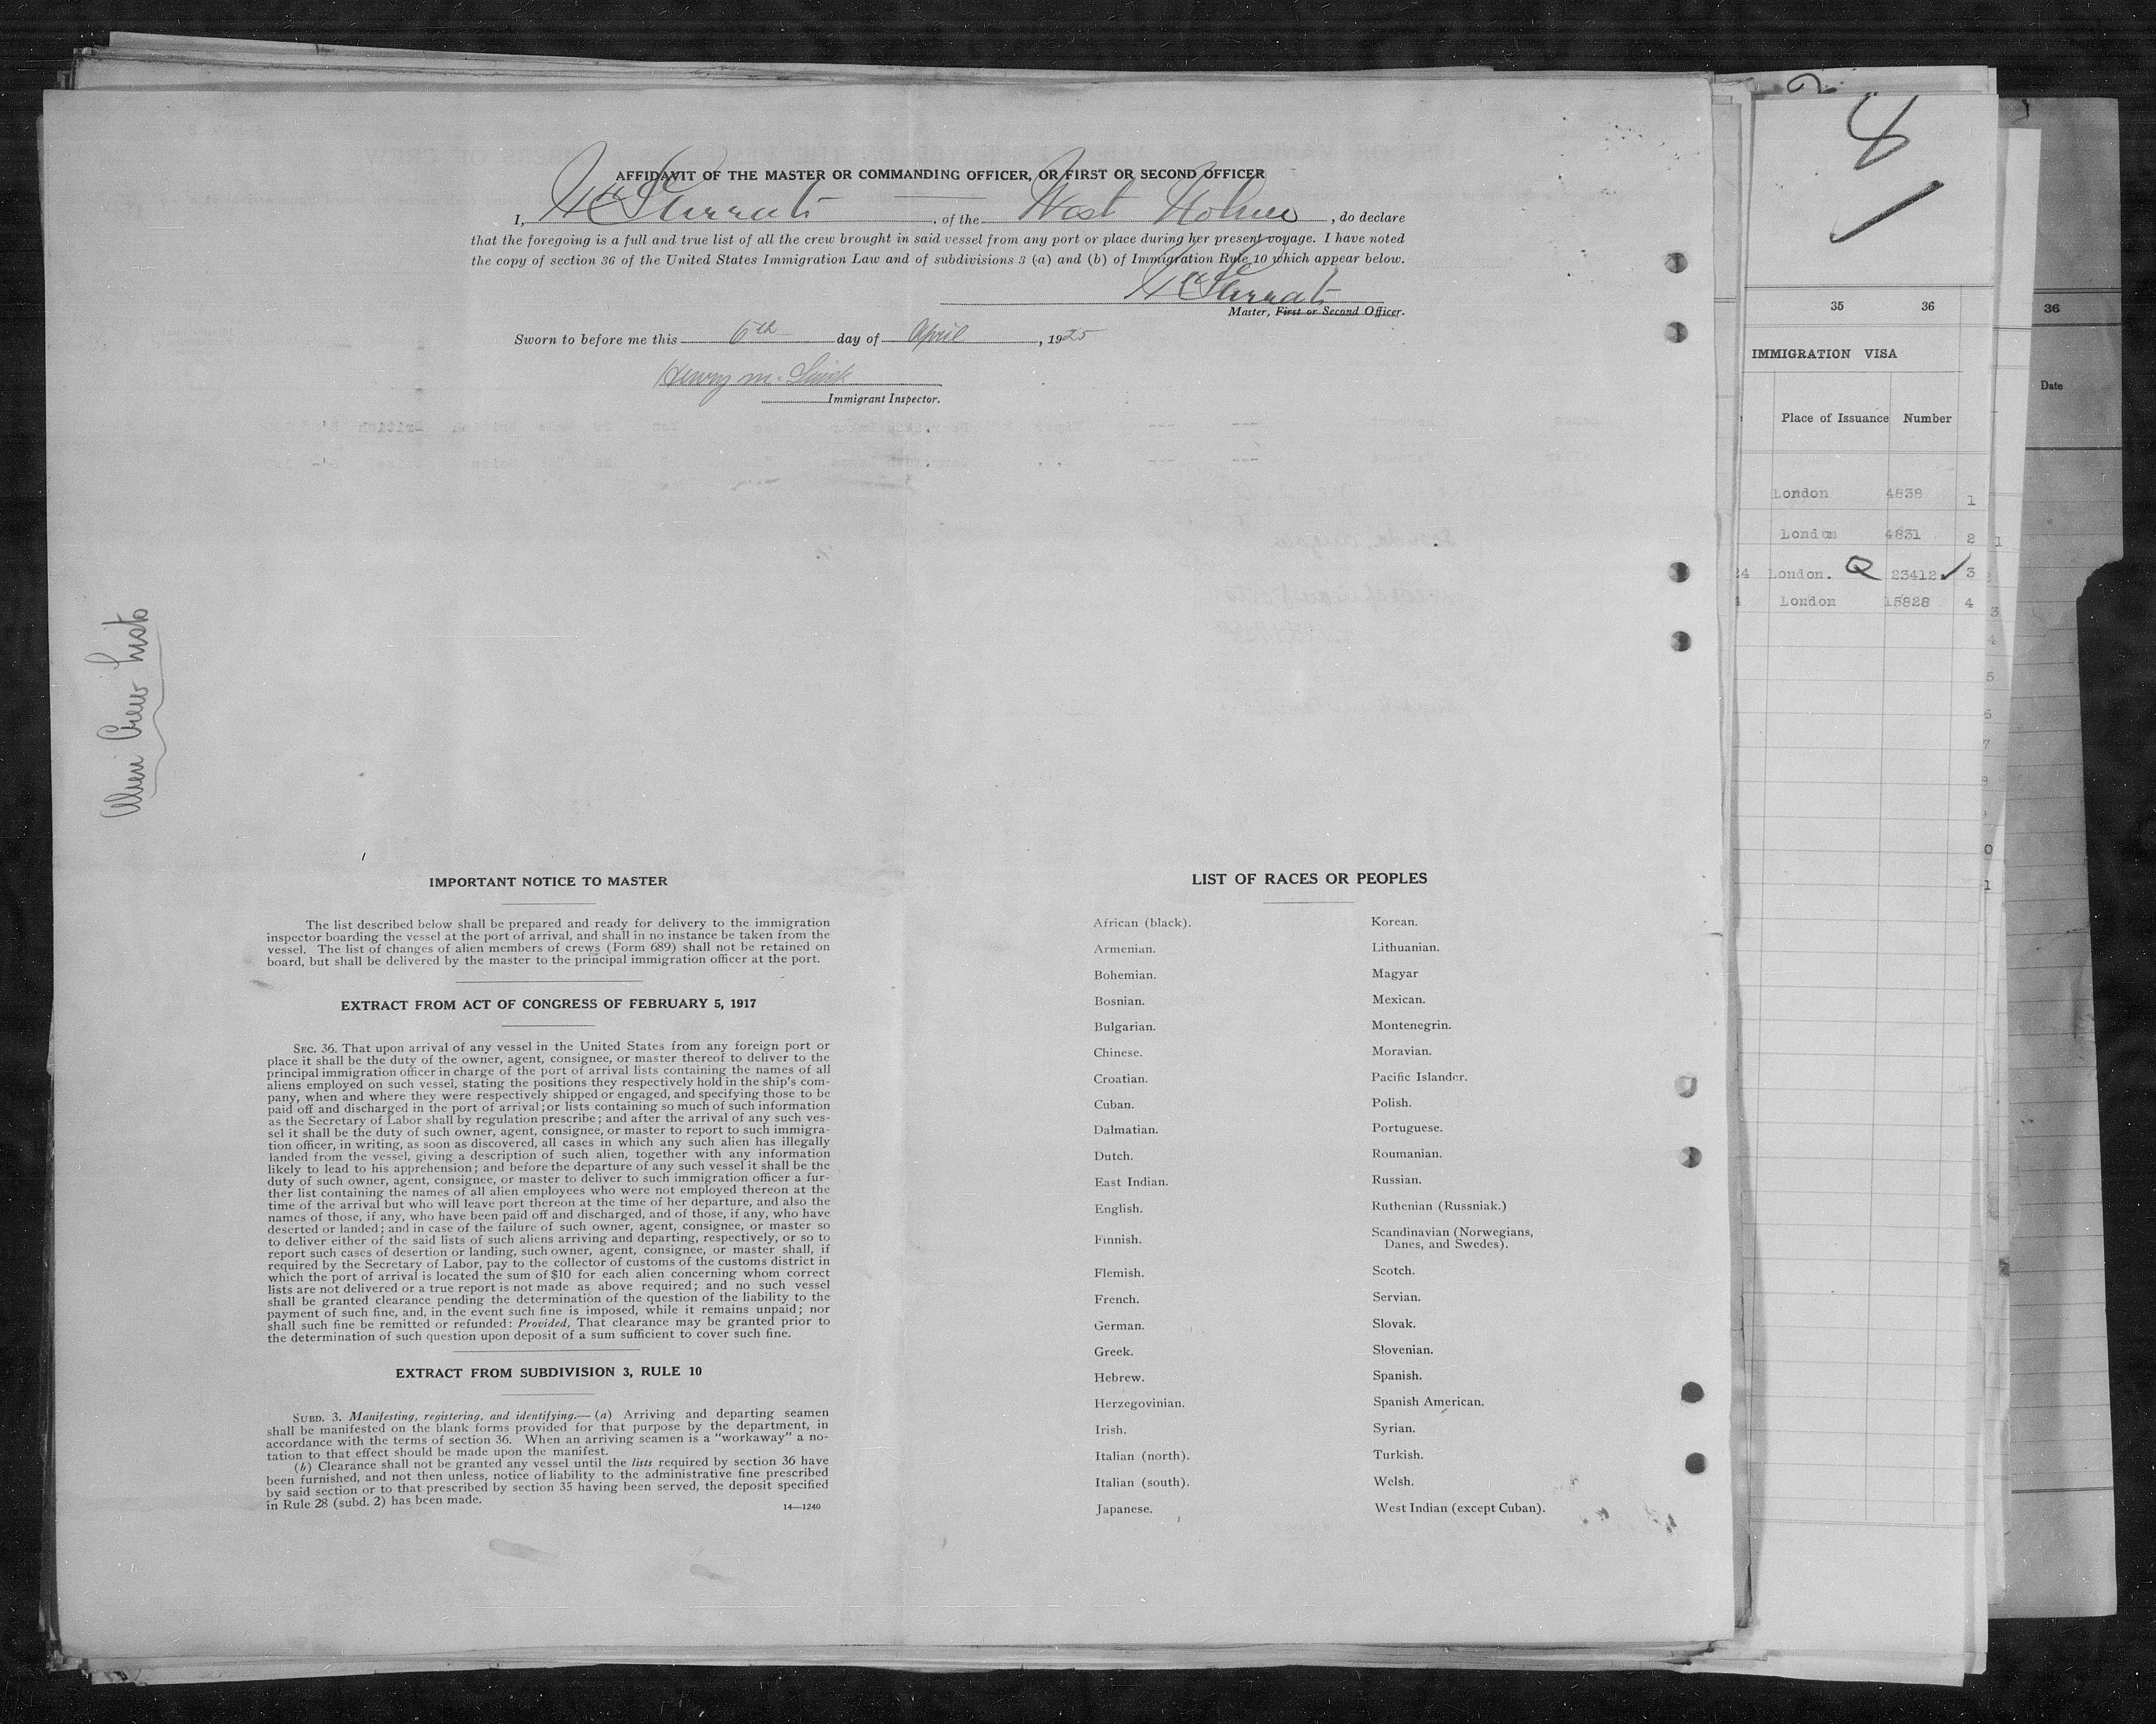 AFFIDAVIT OF THE MASTER OR COMMANDING OFFICER, OR FIRST OR SECOND OFFICER
I, , of the West , do declare
that the foregoing is a full and true list of all the crew brought in said vessel from any port or place during her present voyage. I have noted
the copy of section 36 of the United States Immigration Law and of subdivisions 3 (a) and (b) of Immigration Rule 10 which appear below.
Master, First or Second Officer.
Sworn to before me this 6th day of April, 1925
Henry M.
Immigrant Inspector.
Alien Crew Lists
IMPORTANT NOTICE TO MASTER
The list described below shall be prepared and ready for delivery to the immigration
inspector boarding the vessel at the port of arrival, and shall in no instance be taken from the
vessel. The list of changes of alien members of crews (Form 689) shall not be retained on
board, but shall be delivered by the master to the principal immigration officer at the port.
EXTRACT FROM ACT OF CONGRESS OF FEBRUARY 5, 1917
SEC. 36. That upon arrival of any vessel in the United States from any foreign port or
place it shall be the duty of the owner, agent, consignee, or master thereof to deliver to the
principal immigration officer in charge of the port of arrival lists containing the names of all
aliens employed on such vessel, stating the positions they respectively hold in the ship's com-
pany, when and where they were respectively shipped or engaged, and specifying those to be
paid off and discharged in the port of arrival; or lists containing so much of such information
as the Secretary of Labor shall by regulation prescribe; and after the arrival of any such ves-
sel it shall be the duty of such owner, agent, consignee, or master to report to such immigra-
tion officer, in writing, as soon as discovered, all cases in which any such alien has illegally
landed from the vessel, giving a description of such alien, together with any information
likely to lead to his apprehension; and before the departure of any such vessel it shall be the
duty of such owner, agent, consignee, or master to deliver to such immigration officer a fur-
ther list containing the names of all alien employees who were not employed thereon at the
time of the arrival but who will leave port thereon at the time of her departure, and also the
names of those, if any, who have been paid off and discharged, and of those, if any, who have
deserted or landed; and in case of the failure of such owner, agent, consignee, or master so
to deliver either of the said lists of such aliens arriving and departing, respectively, or so to
report such cases of desertion or landing, such owner, agent, consignee, or master shall, if
required by the Secretary of Labor, pay to the collector of customs of the customs district in
which the port of arrival is located the sum of $10 for each alien concerning whom correct
lists are not delivered or a true report is not made as above required; and no such vessel
shall be granted clearance pending the determination of the question of the liability to the
payment of such fine, and, in the event such fine is imposed, while it remains unpaid; nor
shall such fine be remitted or refunded: Provided, That clearance may be granted prior to
the determination of such question upon deposit of a sum sufficient to cover such fine.
EXTRACT FROM SUBDIVISION 3, RULE 10
SUBD. 3. Manifesting, registering, and identifying.—(a) Arriving and departing seamen
shall be manifested on the blank forms provided for that purpose by the department, in
accordance with the terms of section 36. When an arriving seamen is a "workaway" a no-
tation to that effect should be made upon the manifest.
(b) Clearance shall not be granted any vessel until the lists required by section 36 have
been furnished, and not then unless, notice of liability to the administrative fine prescribed
by said section or to that prescribed by section 35 having been served, the deposit specified
in Rule 28 (subd. 2) has been made.
14—1240
LIST OF RACES OR PEOPLES
African (black).
Armenian.
Bohemian.
Bosnian.
Bulgarian.
Chinese.
Croatian.
Cuban.
Dalmatian.
Dutch.
East Indian.
English.
Finnish.
Flemish.
French.
German.
Greek.
Hebrew.
Herzegovinian.
Irish.
Italian (north).
Italian (south).
Japanese.
Korean.
Lithuanian.
Magyar
Mexican.
Montenegrin.
Moravian.
Pacific Islander.
Polish.
Portuguese.
Roumanian.
Russian.
Ruthenian (Russniak.)
Scandinavian (Norwegians,
Danes, and Swedes).
Scotch.
Servian.
Slovak.
Slovenian.
Spanish.
Spanish American.
Syrian.
Turkish.
Welsh.
West Indian (except Cuban).
35 36
IMMIGRATION VISA
Place of Issuance Number
London 4838 1
London 4831 2
24 London. Q 23412 3
London 15828 4
36
Date